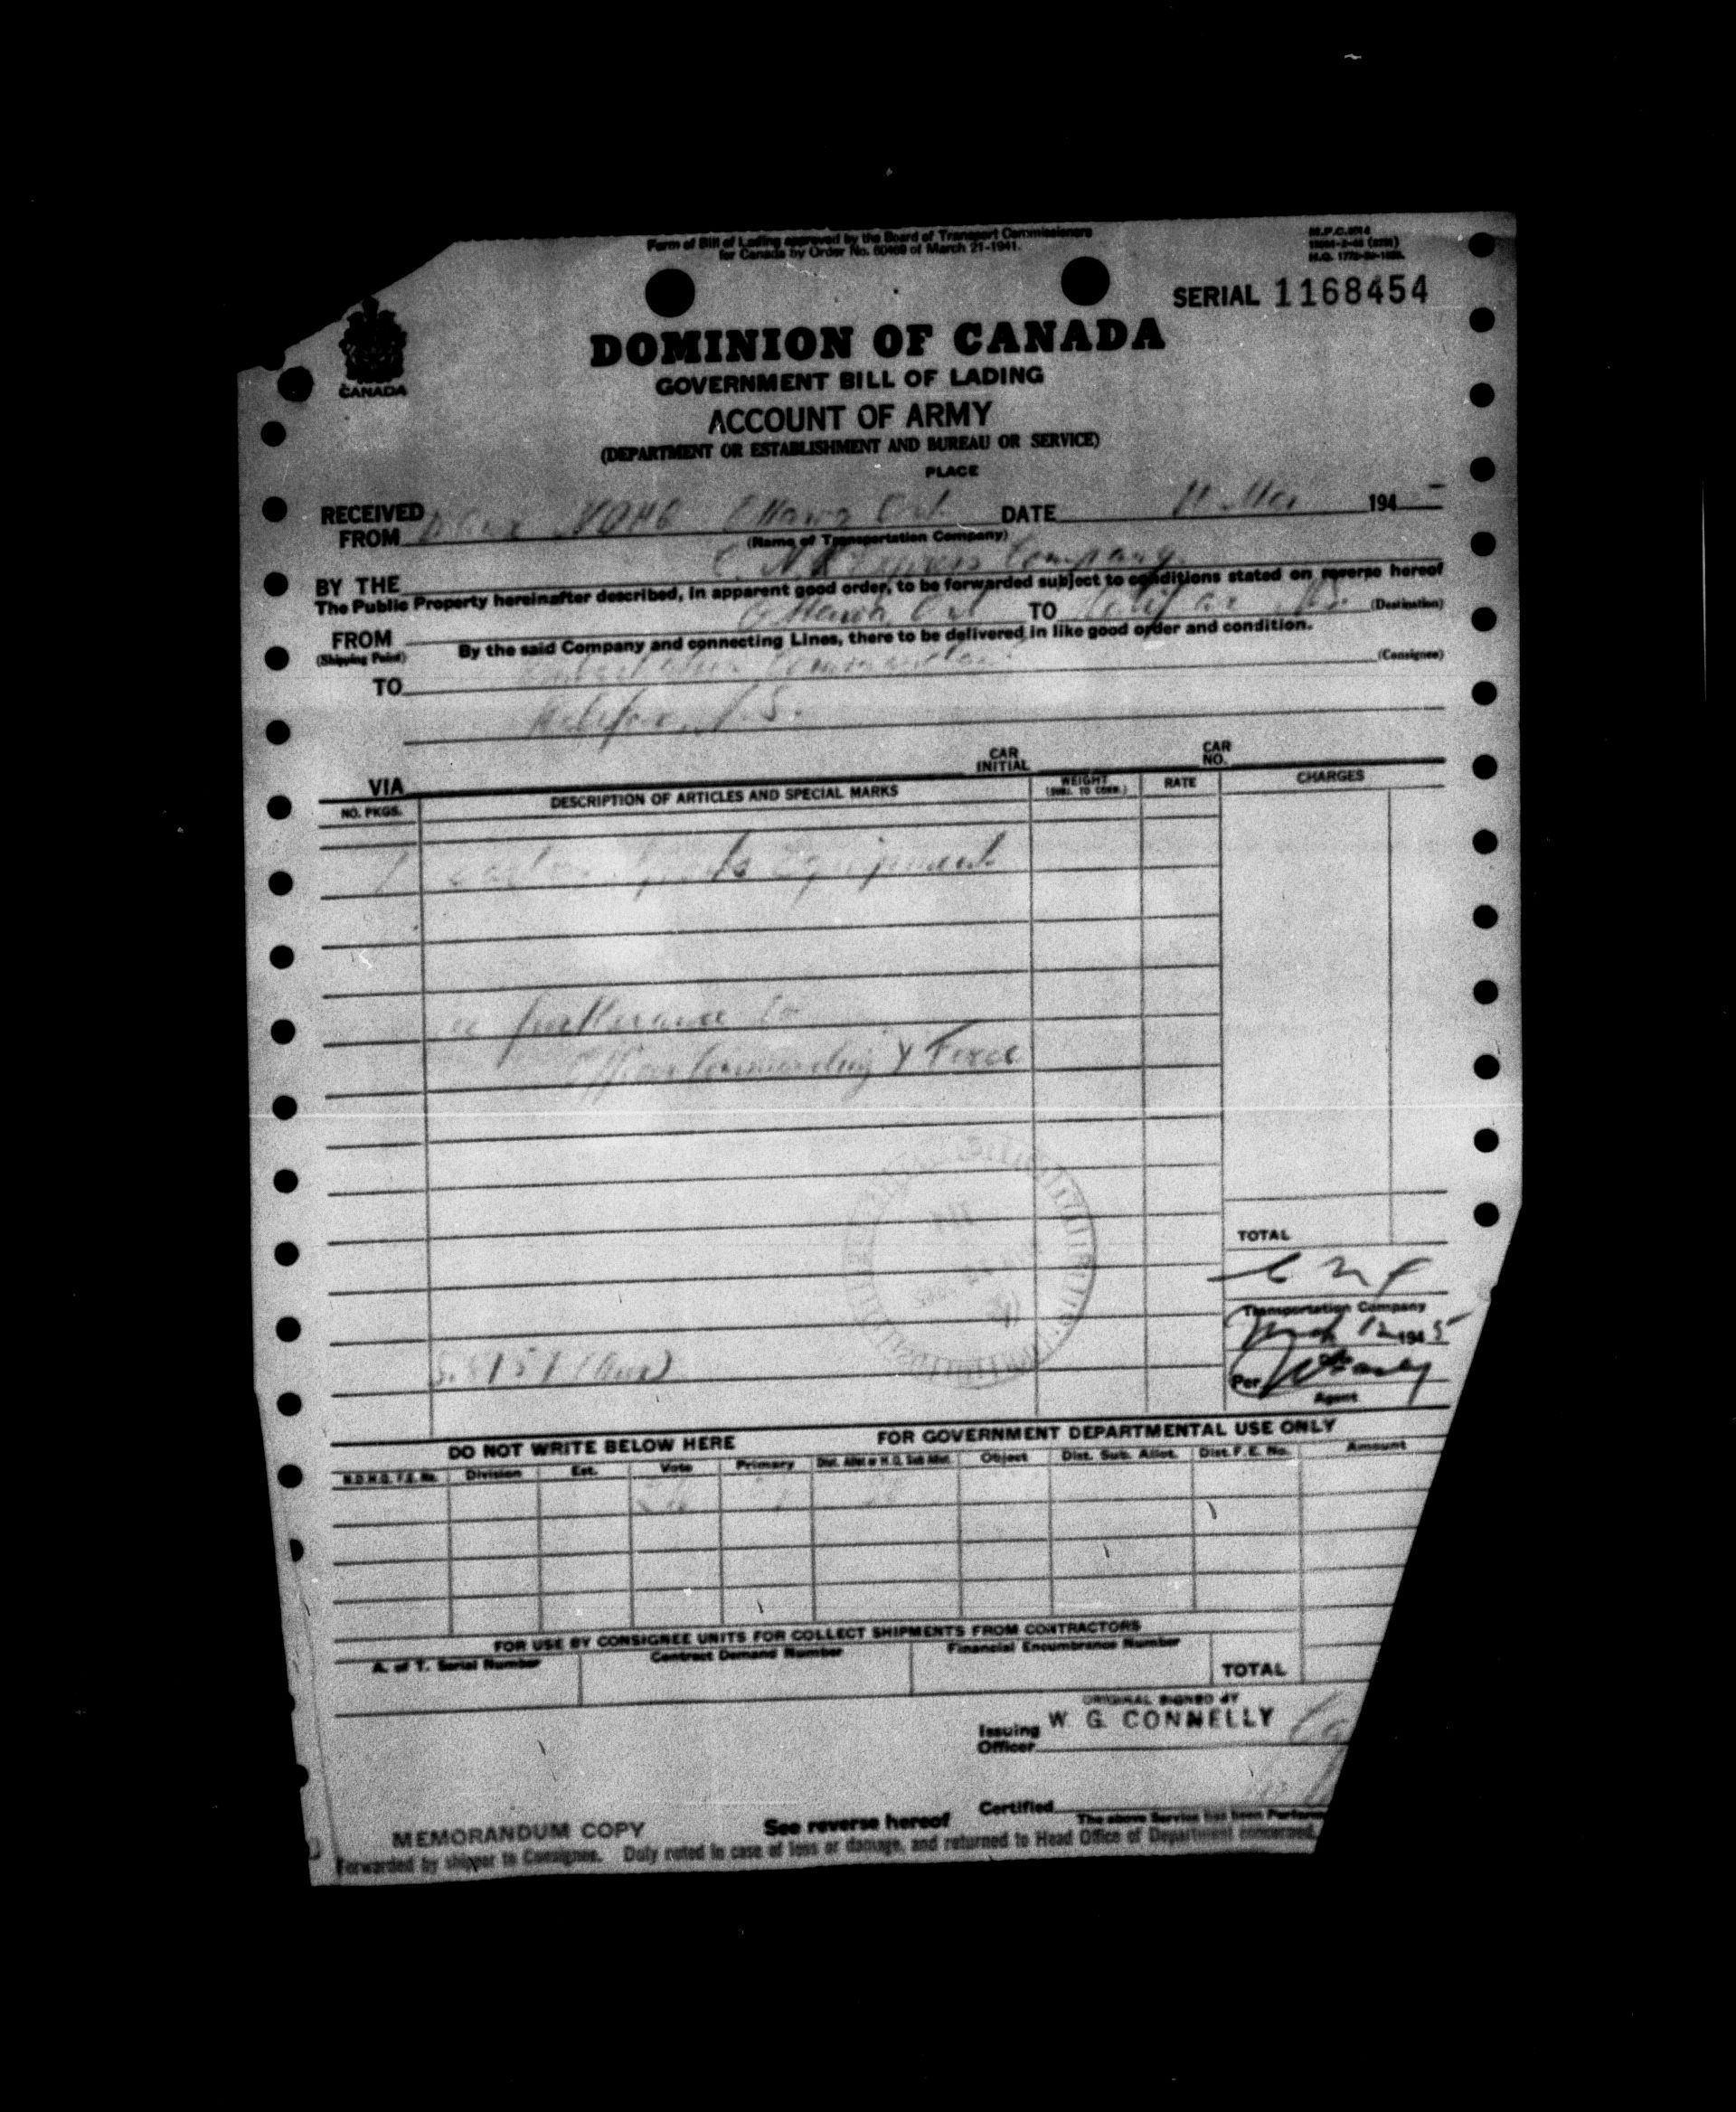 Form of Bill of Lading approved by the Board of Transport Commissioners
for Canada by Order No. 60469 of March 21-1941.
SERIAL 1168454
CANADA
DOMINION OF CANADA
GOVERNMENT BILL OF LADING
ACCOUNT OF ARMY
(DEPARTMENT OR ESTABLISHMENT AND BUREAU OR SERVICE)
PLACE
RECEIVED
FROM NDHQ Ottawa Ont DATE 11 Mar 194
(Name of Transportation Company)
BY THE C. N. Express Company
The Public Property hereinafter described, in apparent good order, to be forwarded subject to conditions stated on reverse hereof
FROM Ottawa, Ont TO Halifax N.S. (Destination)
(Shipping Point) By the said Company and connecting Lines, there to be delivered in like good order and condition.
TO Embarkation Commandant (Consignee)
Halifax, N.S.
VIA CAR INITIAL CAR NO.
NO. PKGS. DESCRIPTION OF ARTICLES AND SPECIAL MARKS WEIGHT (SUBJ. TO CORR.) RATE CHARGES
1 carton Sports Equipment
furtherance to
Officer Commanding Y Force
TOTAL
Transportation Company
12 1945
Per
Agent
DO NOT WRITE BELOW HERE FOR GOVERNMENT DEPARTMENTAL USE ONLY
N.D.H.Q. F.E. No. Division Est. Vote Primary Dist. Allot or H.Q. Sub Allot. Object Dist. Sub. Allot. Dist. F.E. No. Amount
FOR USE BY CONSIGNEE UNITS FOR COLLECT SHIPMENTS FROM CONTRACTORS
A. of T. Serial Number Contract Demand Number Financial Encumbrance Number TOTAL
ORIGINAL SIGNED BY
Issuing Officer W. G. CONNELLY
Certified
The above Service has been Perform
MEMORANDUM COPY See reverse hereof
Forwarded by shipper to Consignee. Duly noted in case of loss or damage, and returned to Head Office of Department concerned.